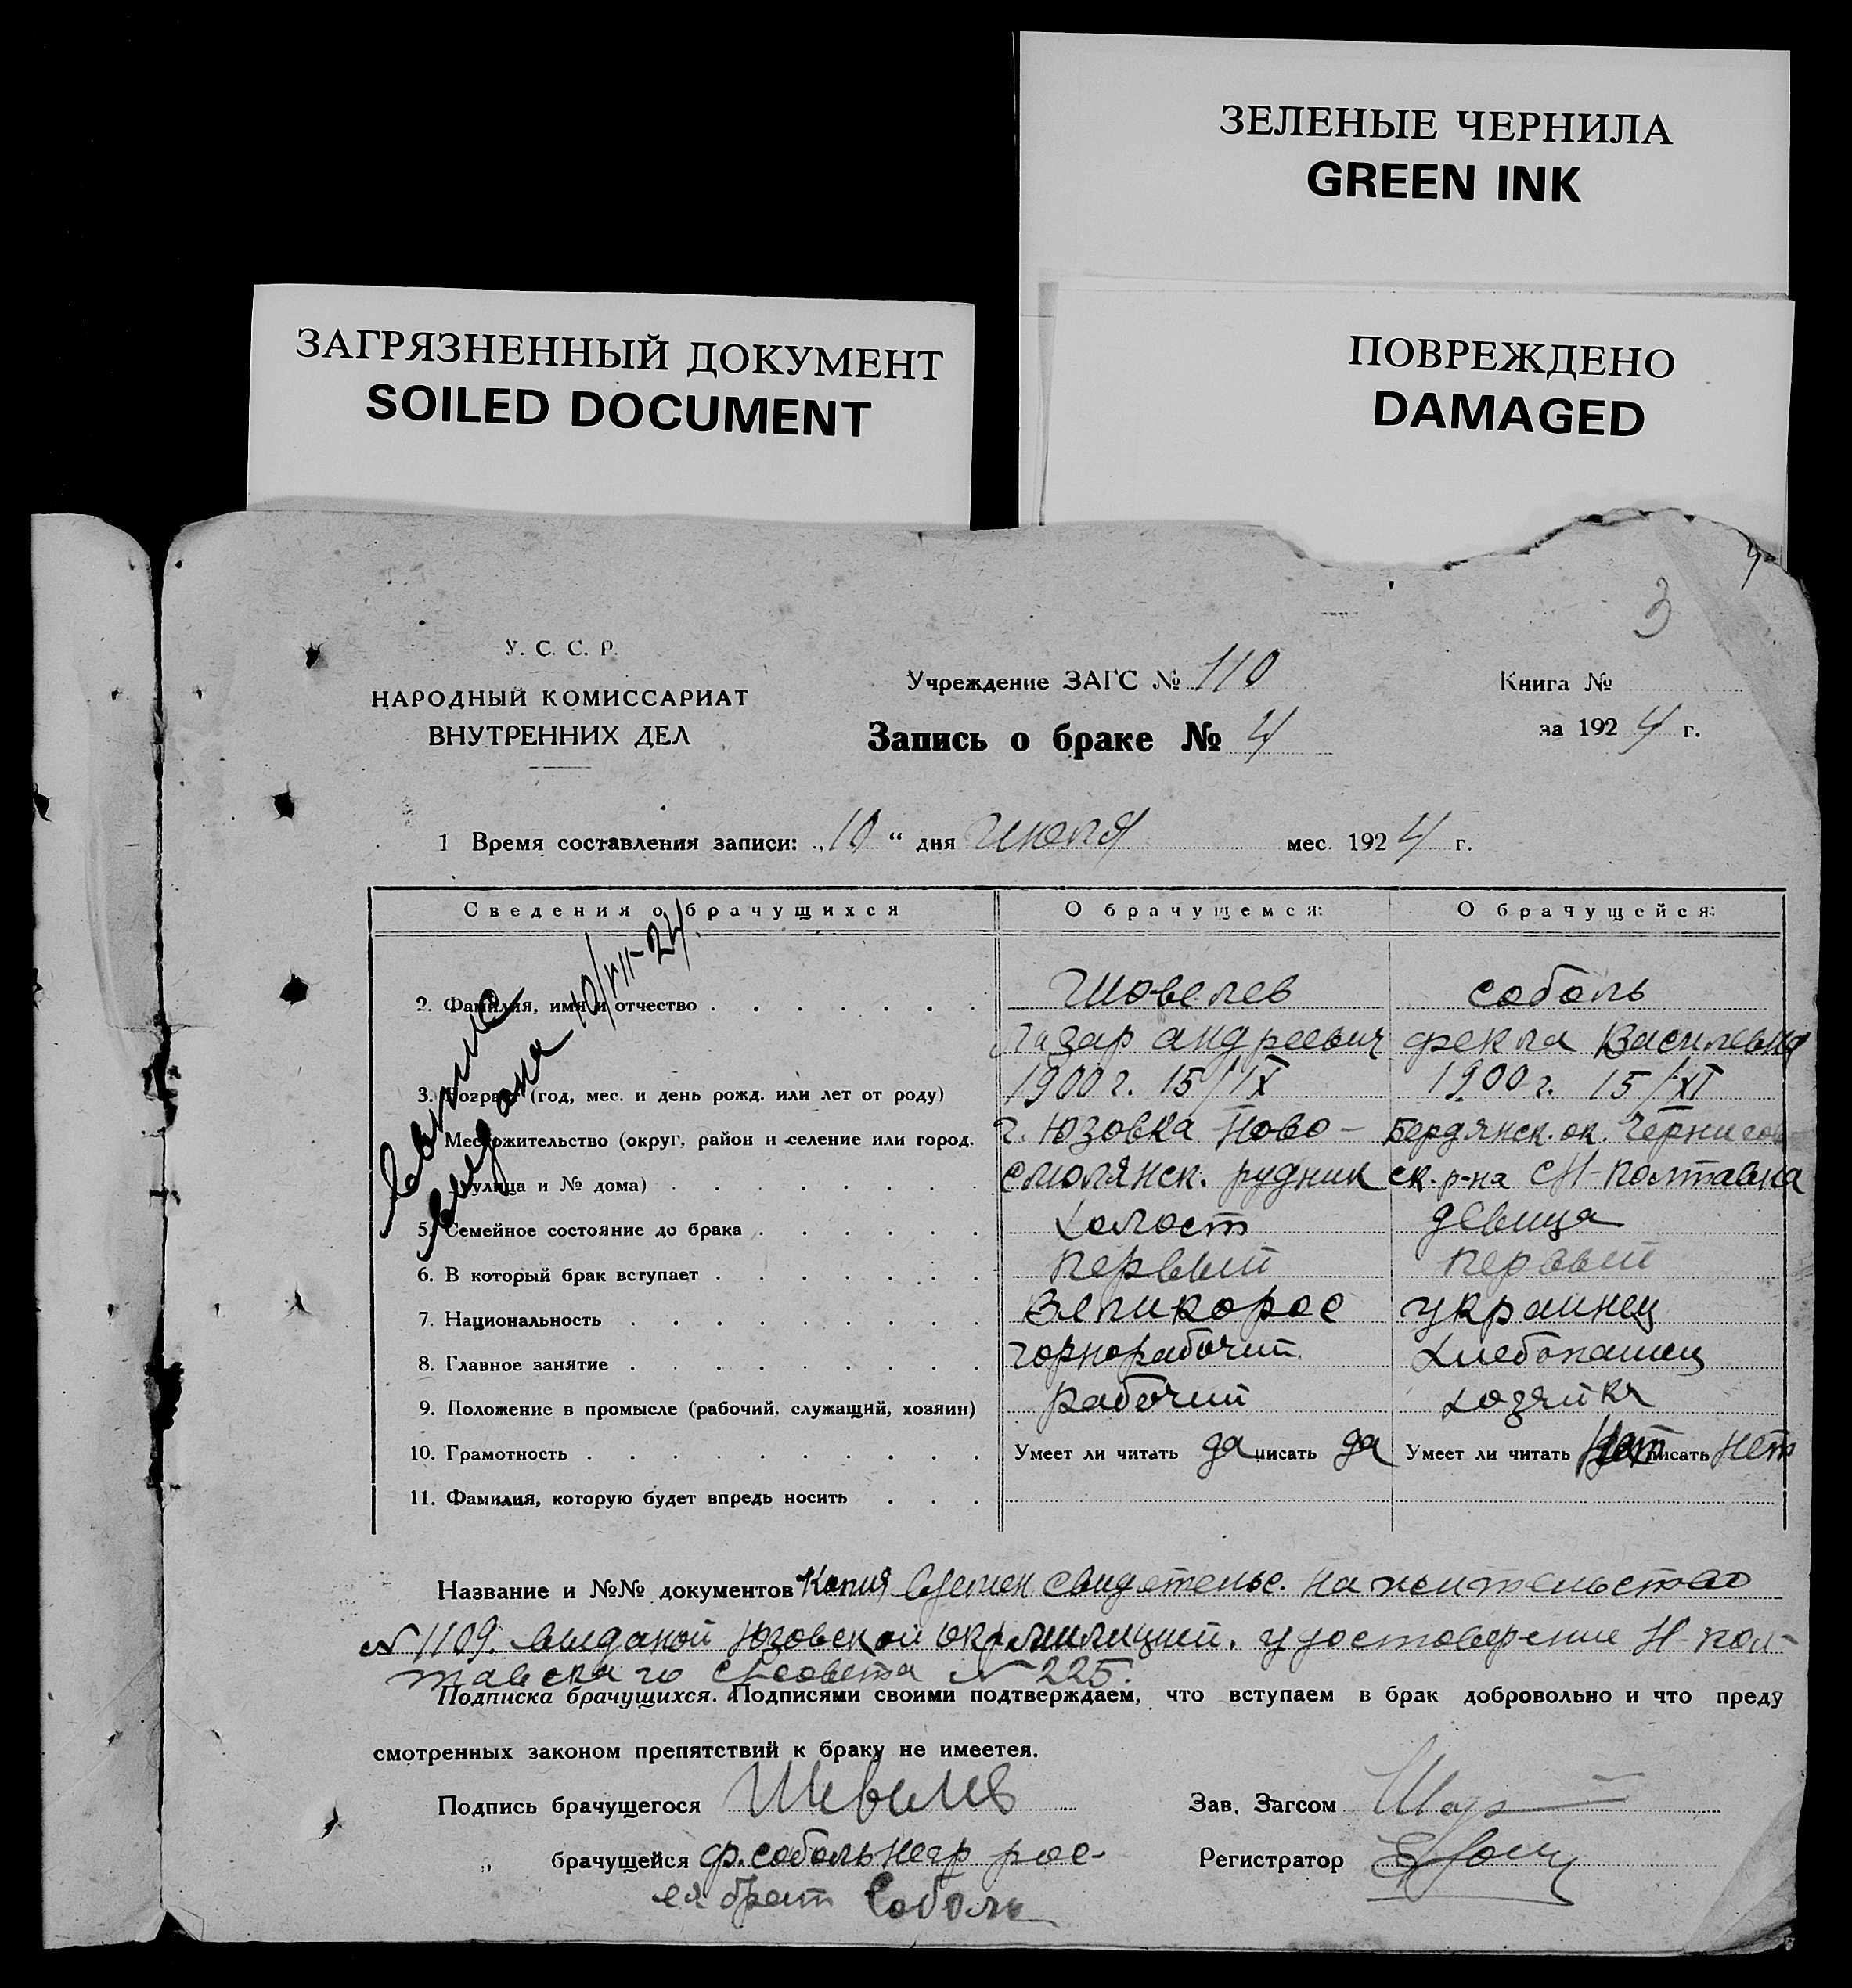 ЗЕЛЕНЫЕ ЧЕРНИЛА
GREEN INK
ЗАГРЯЗНЕННЫЙ ДОКУМЕНТ
SOILED DOCUMENT
ПОВРЕЖДЕНО
DAMAGED
3
У. С. С. Р.
НАРОДНЫЙ КОМИССАРИАТ
ВНУТРЕННИХ ДЕЛ
Учреждение ЗАГС № 110
Запись о браке № 4
Книга №
за 1924 г.
1 Время составления записи: „10“ дня Июля мес. 1924 г.
Сведения о брачущихся О брачущемся: О брачущейся:
выдана 10/VII-24
2. Фамилия, имя и отчество Шовелев Соболь
Лазар Андреевич Фекла Василевна
3. Возраст (год, мес. и день рожд. или лет от роду) 1900 г. 15/IX 1900 г. 15/XI
Местожительство (округ, район и селение или город, г. Юзовка Ново- Бердянск. ок. Черниговулица и № дома) Смолянск. рудник ск. р-на с Н-Полтавка
5. Семейное состояние до брака холост девица
6. В который брак вступает первый первый
7. Национальность Великорос украинец
8. Главное занятие горнорабочий хлебопашец
9. Положение в промысле (рабочий, служащий, хозяин) рабочий хозяйка
10. Грамотность Умеет ли читать да писать да Умеет ли читать нет писать нет
11. Фамилия, которую будет впредь носить
Название и №№ документов Копия времен свидетельс. на жительство
№ 1109. выданой Юзовской окрмилицией. удостоверение Н-Полтавскаго с/совета № 225.
Подписка брачущихся. Подписями своими подтверждаем, что вступаем в брак добровольно и что преду
смотренных законом препятствий к браку не имеется.
Подпись брачущегося Шевелев Зав. Загсом
„ брачущейся Ф. Соболь негр рос- Регистратор
ея брат Соболь